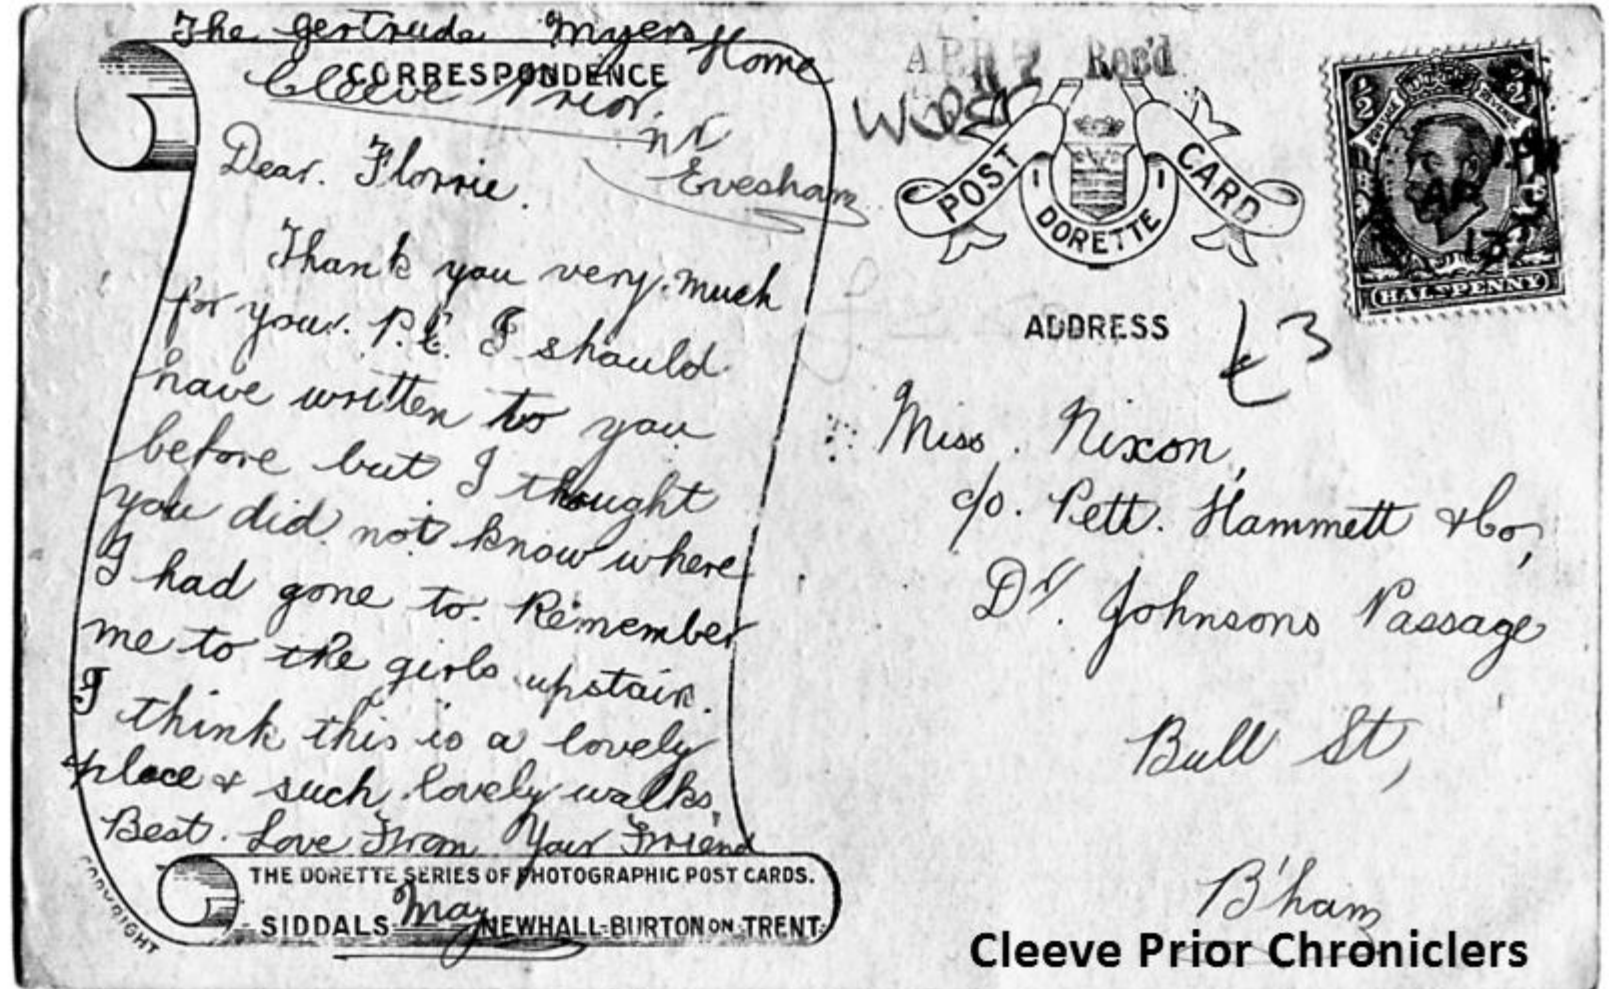 The Gertrude Myers Home
CORRESPONDENCE
Cleeve Prior,
nr
Evesham
Dear. Florrie.
Thank you very much
for your. P.C. I should
have written to you
before but I thought
you did not know where
I had gone to. Remember
me to the girls upstair.
I think this is a lovely
place & such lovely walks,
Best. Love From Your Friend
May
THE DORETTE SERIES OF PHOTOGRAPHIC POST CARDS.
SIDDALS NEWHALL-BURTON ON TRENT
COPYRIGHT
Rec'd
POST CARD
DORETTE
HALFPENNY
ADDRESS
£3
Miss. Nixon,
c/o. Pett. Hammett & Co,
Dr. Johnsons Passage
Bull St,
B'ham
Cleeve Prior Chroniclers